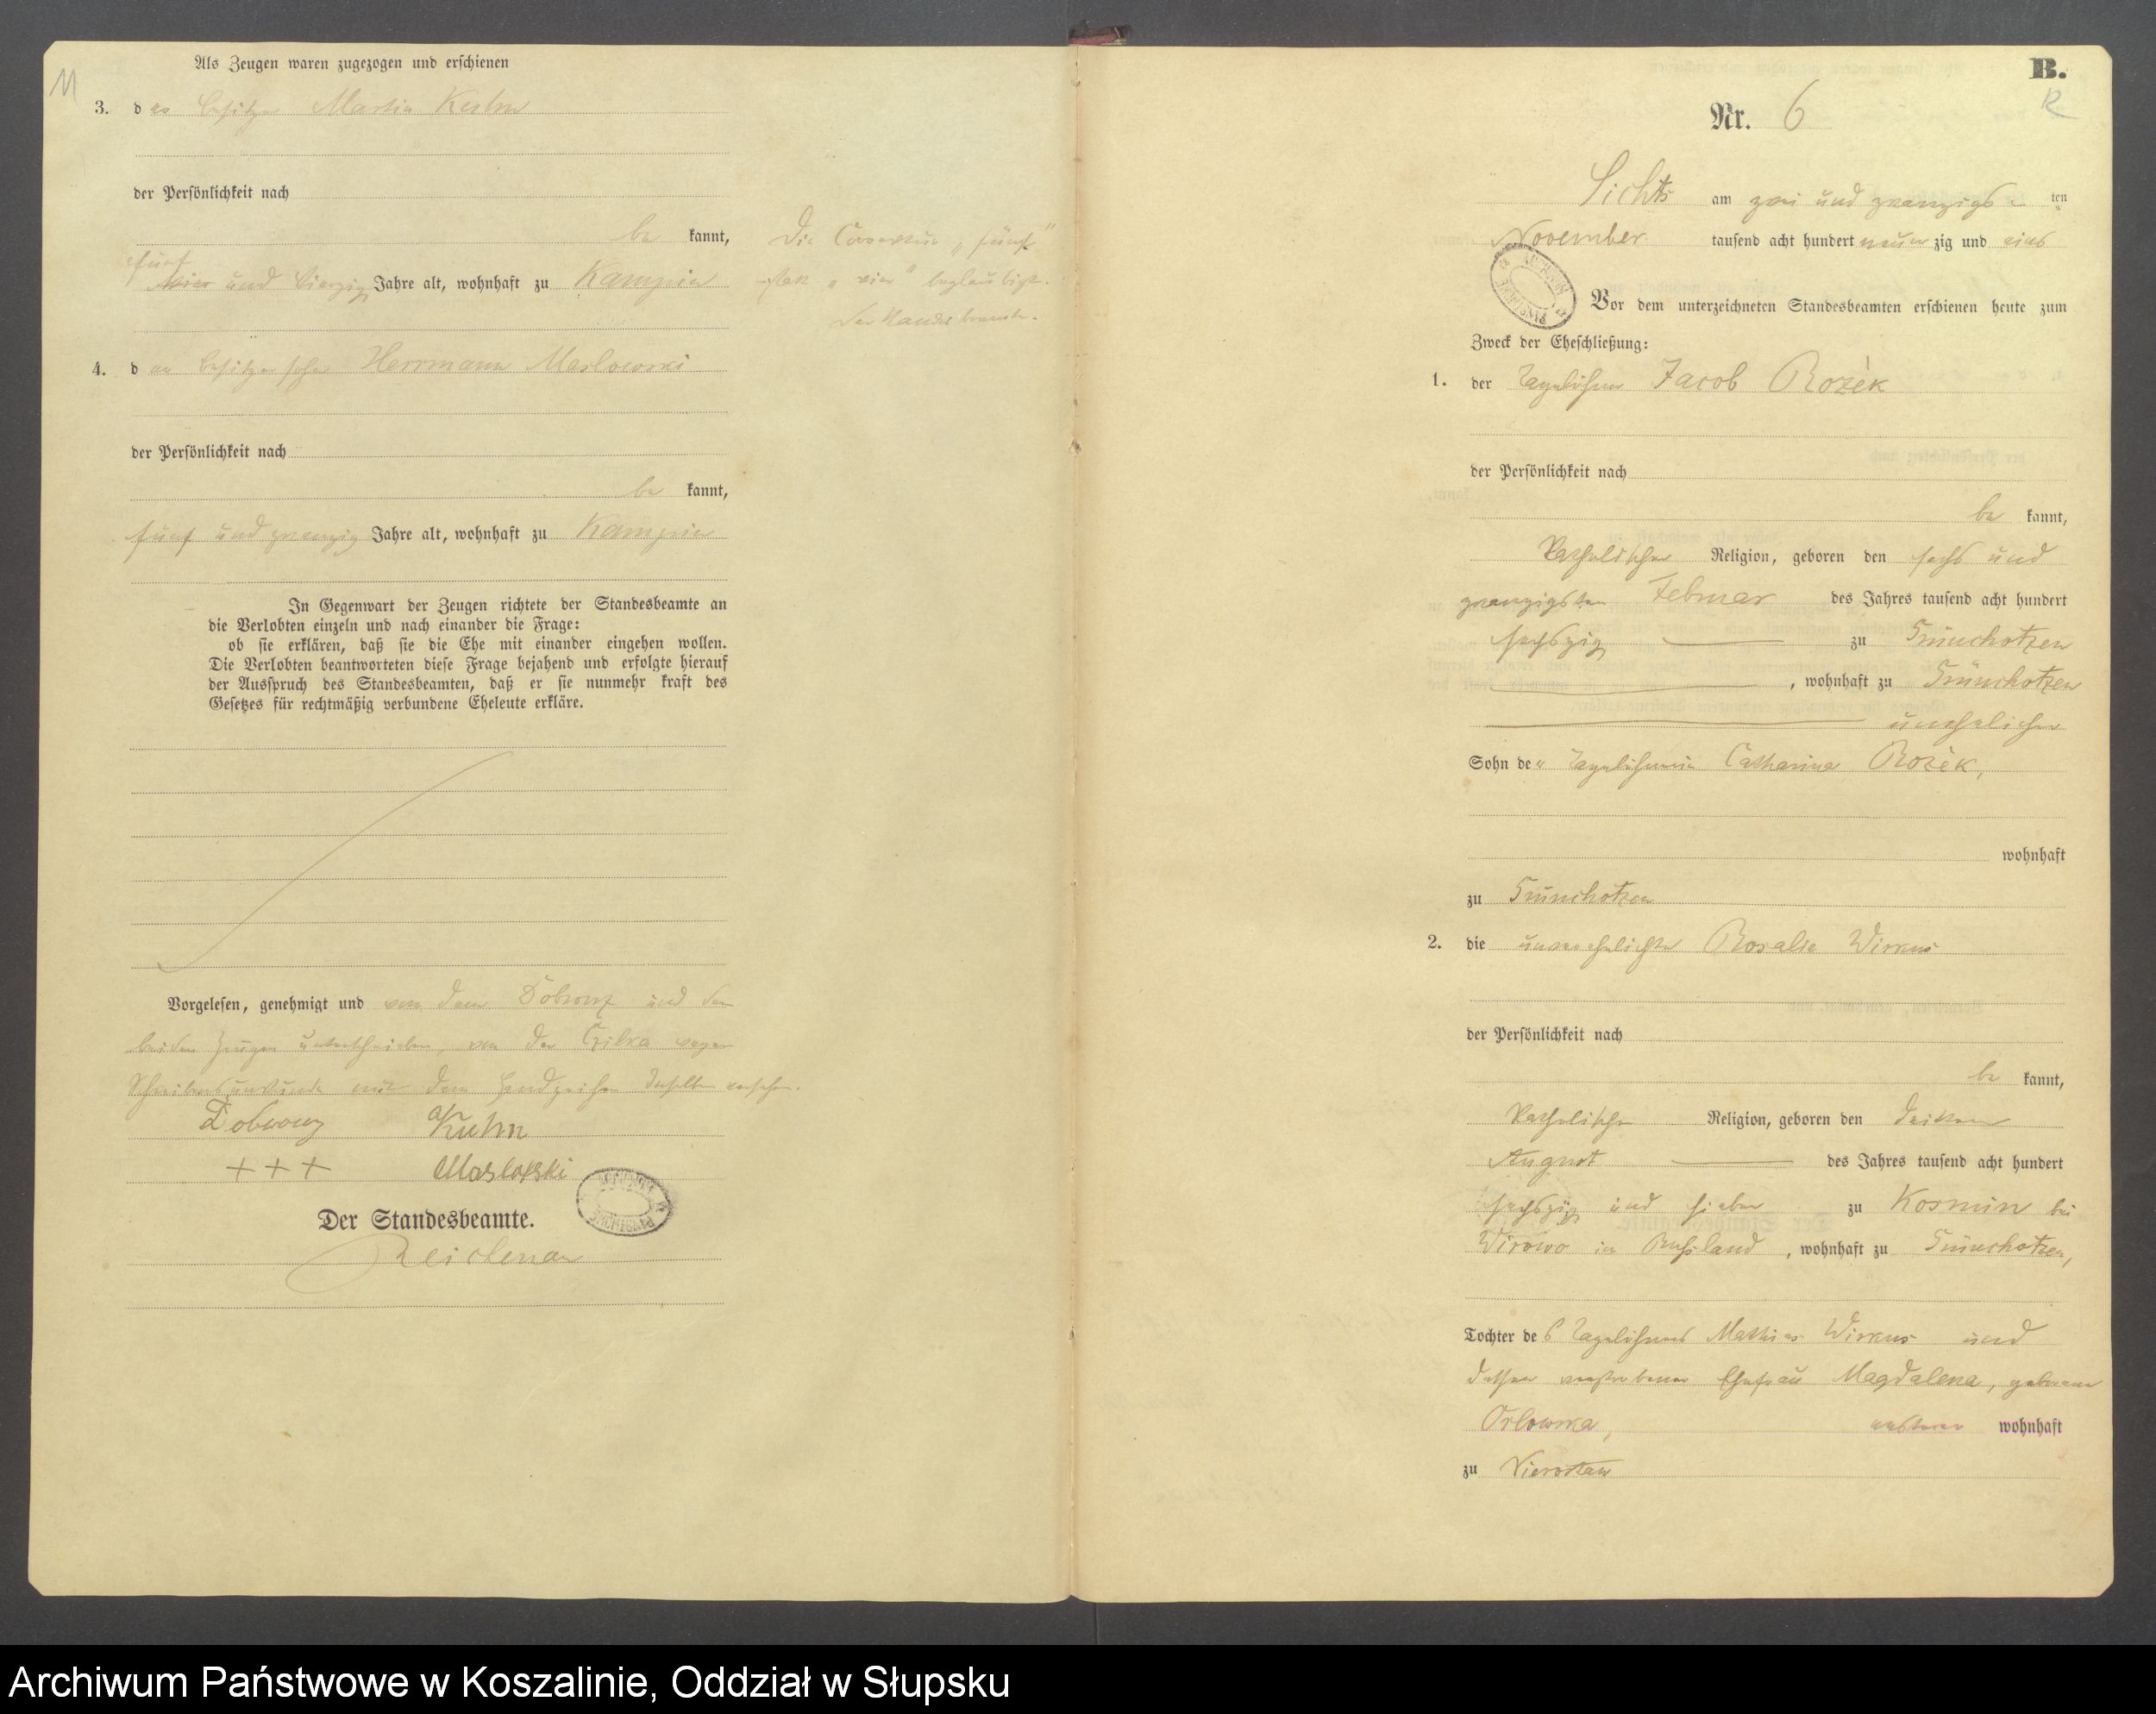 11
Als Zeugen waren zugezogen und erschienen
3. der Besitzer Martin Kuhn
der Persönlichkeit nach
be kannt,
fünf
vier und vierzig Jahre alt, wohnhaft zu Kampin
Die Correktur „fünf"
statt „vier" beglaubigt.
Der Standesbeamte.
4. der Besitzersohn Herrmann Maslowski
der Persönlichkeit nach
be kannt,
fünf und zwanzig Jahre alt, wohnhaft zu Kampin
In Gegenwart der Zeugen richtete der Standesbeamte an
die Verlobten einzeln und nach einander die Frage:
ob sie erklären, daß sie die Ehe mit einander eingehen wollen.
Die Verlobten beantworteten diese Frage bejahend und erfolgte hierauf
der Ausspruch des Standesbeamten, daß er sie nunmehr kraft des
Gesetzes für rechtmäßig verbundene Eheleute erkläre.
Vorgelesen, genehmigt und von dem und den
beiden Zeugen unterschrieben, von der wegen
Schreibensunkunde mit dem Handzeichen derselben versehen.
Kuhn
+++ Maslofski
Der Standesbeamte.
Reichenau
B.
12
Nr. 6
am zwei und zwanzigs ten
November tausend acht hundert neun zig und eins
Vor dem unterzeichneten Standesbeamten erschienen heute zum
Zweck der Eheschließung:
1. der Tagelöhner Jacob Rozek
der Persönlichkeit nach
be kannt,
katholischer Religion, geboren den sechs und
zwanzigsten Februar des Jahres tausend acht hundert
sechszig zu Grünchotzen
, wohnhaft zu Grünchotzen
unehelicher
Sohn der Tagelöhnerin Catharina Rozek,
wohnhaft
zu Grünchotzen
2. die unverehelichte Rosalie Wirkus
der Persönlichkeit nach
be kannt,
katholischer Religion, geboren den dritten
August des Jahres tausend acht hundert
sechszig und sieben zu Kosmin bei
in Rußland, wohnhaft zu Grünchotzen,
Tochter des Tagelöhners Mathias Wirkus und
dessen verstorbener Ehefrau Magdalena, geborene
ersterer wohnhaft
zu
Archiwum Państwowe w Koszalinie, Oddział w Słupsku